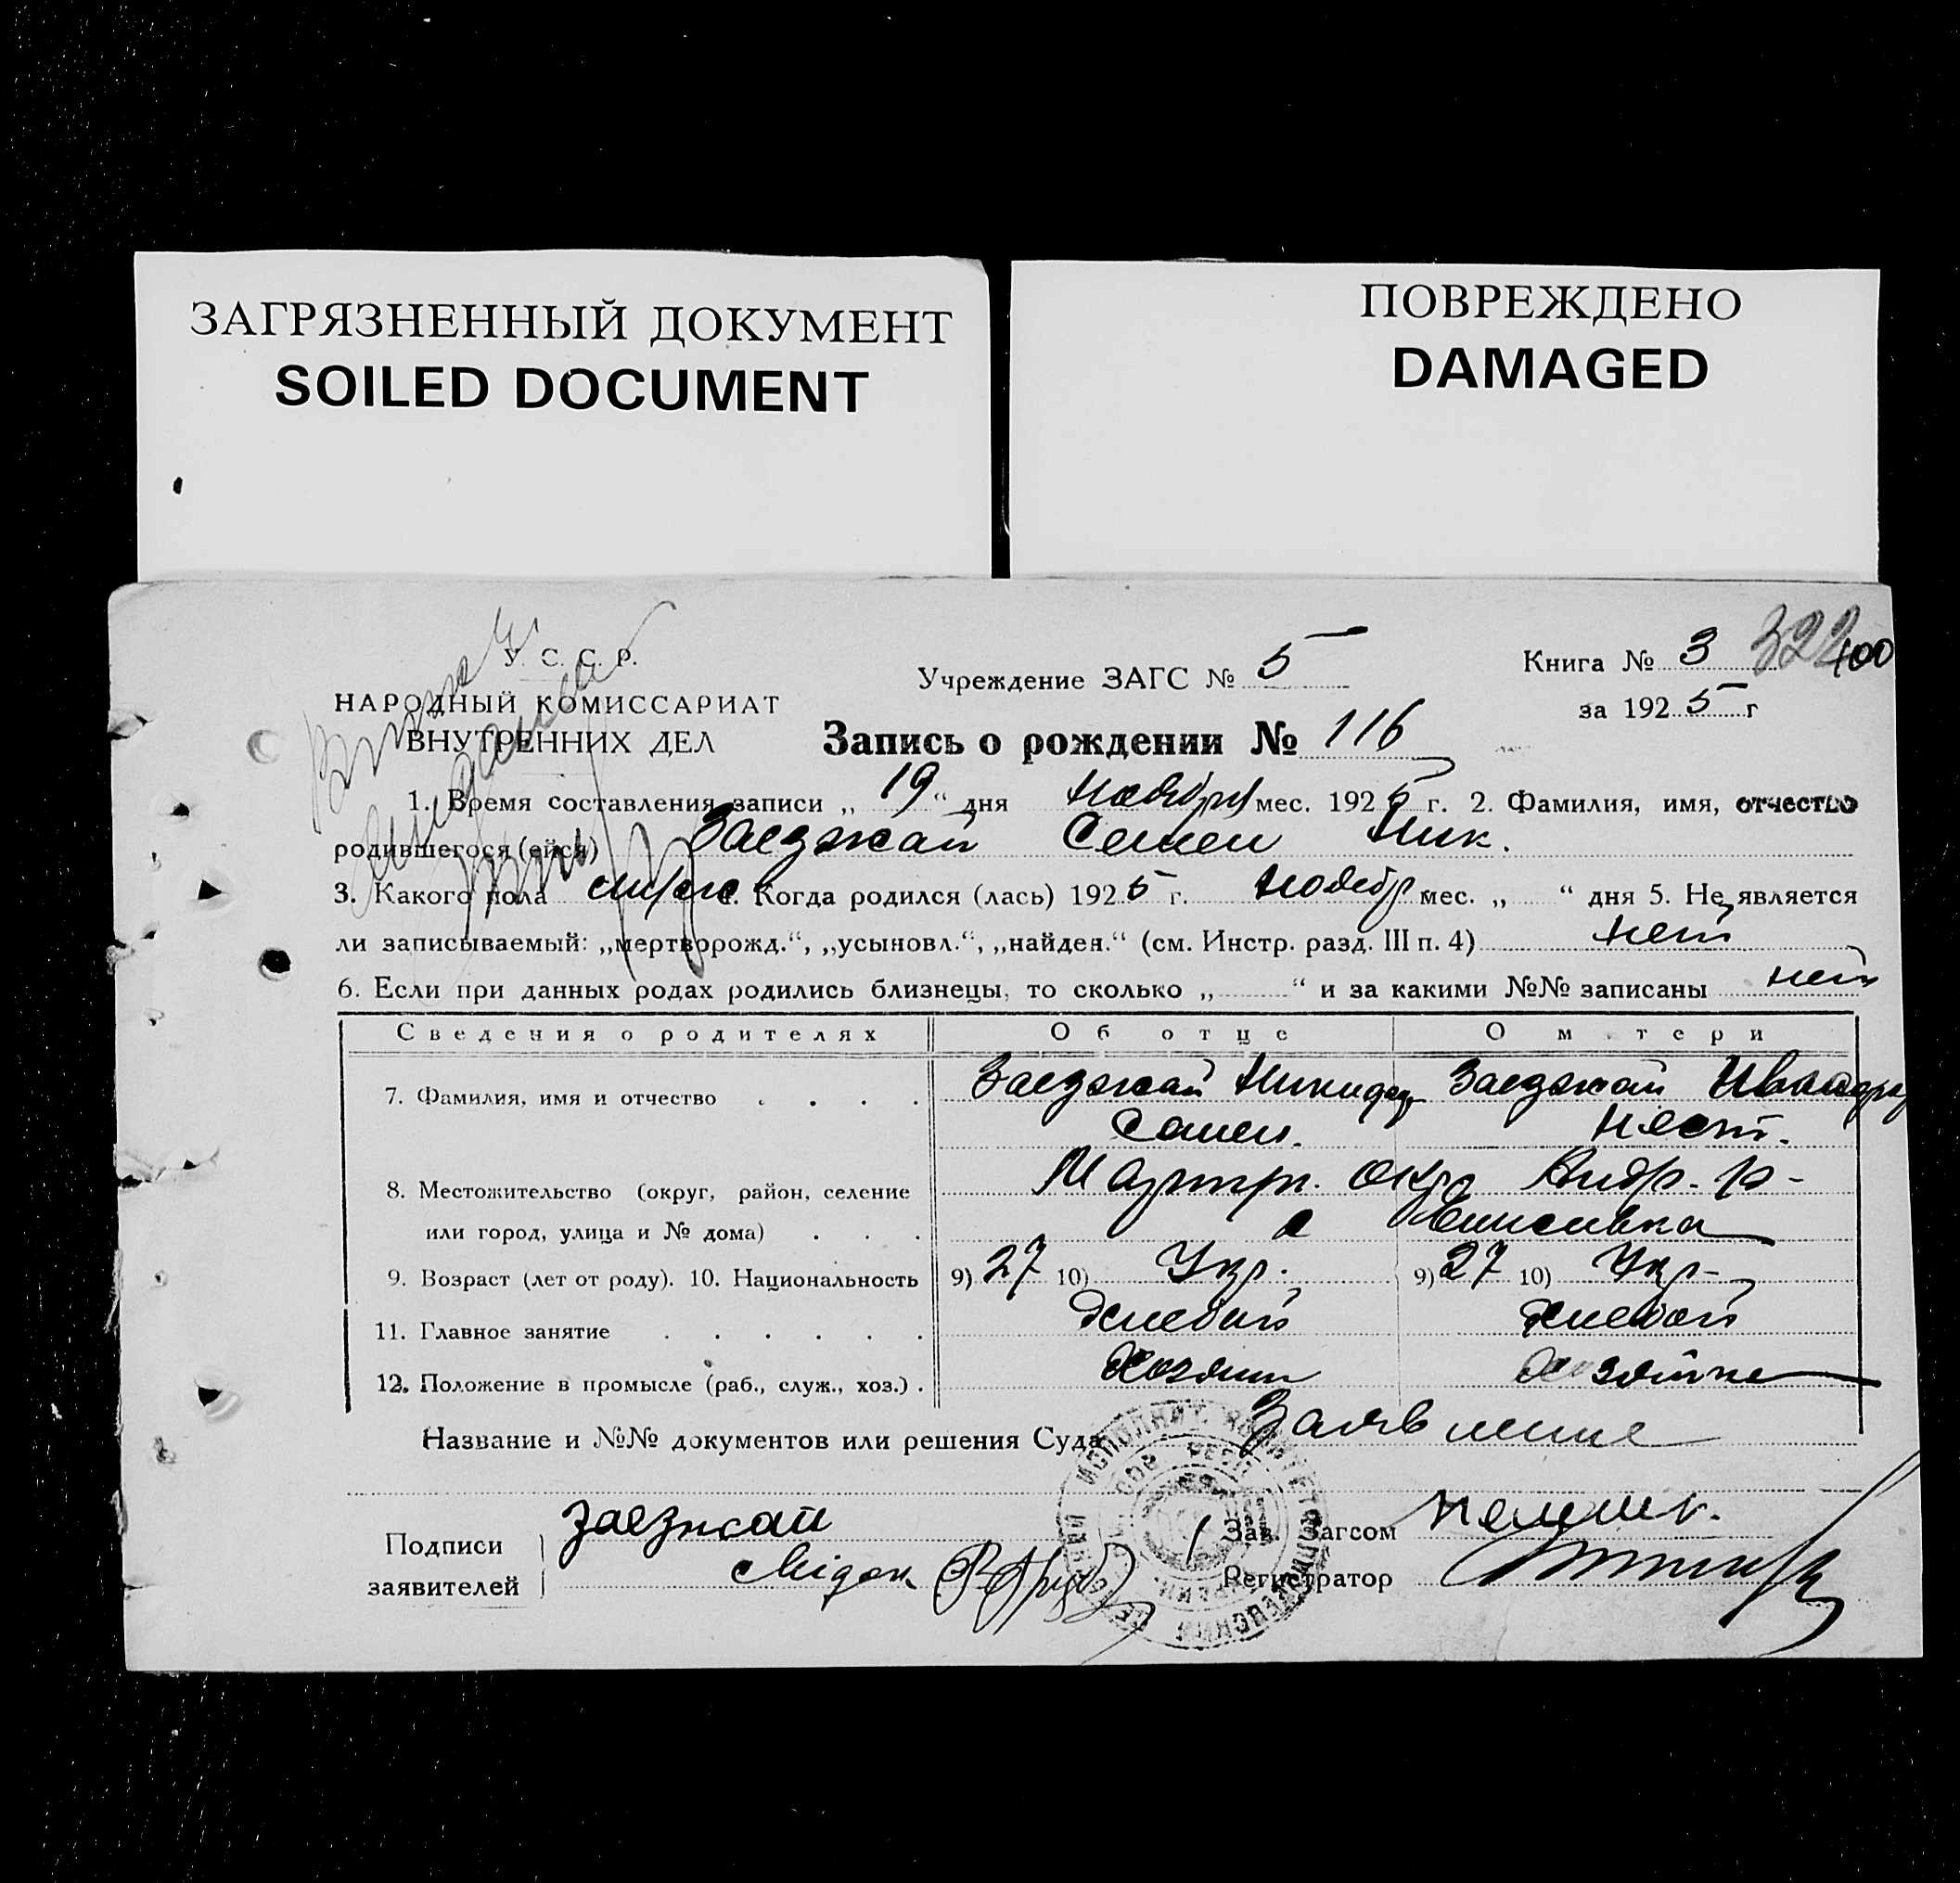 ЗАГРЯЗНЕННЫЙ ДОКУМЕНТ
SOILED DOCUMENT
ПОВРЕЖДЕНО
DAMAGED
У. С. С. Р.
НАРОДНЫЙ КОМИССАРИАТ
ВНУТРЕННИХ ДЕЛ
Учреждение ЗАГС № 5
Книга № 3 322 400
за 1925 г
Запись о рождении № 116
1. Время составления записи „ 19 “ дня Ноября мес. 1925 г. 2. Фамилия, имя, отчество
родившегося (ейся) Заезжай Семен Ник.
3. Какого пола Когда родился (лась) 1925 г. Ноябр мес. „ “ дня 5. Не является
ли записываемый: „мертворожд.“, „усыновл.“, „найден.“ (см. Инстр. разд. III п. 4) нет
6. Если при данных родах родились близнецы, то сколько „ “ и за какими №№ записаны нет
Сведения о родителях Об отце О м тери
7. Фамилия, имя и отчество Заезжай Заезжай
Семен. Нест.
8. Местожительство (округ, район, селение окр
или город, улица и № дома)
9. Возраст (лет от роду). 10. Национальность 9) 27 10) Укр. 9) 27 10) Укр-
11. Главное занятие
12. Положение в промысле (раб., служ., хоз.) Хозяин Хозяйка
Название и №№ документов или решения Суда Заявление
Подписи заявителей Заезжай
Зав. Загсом
Регистратор